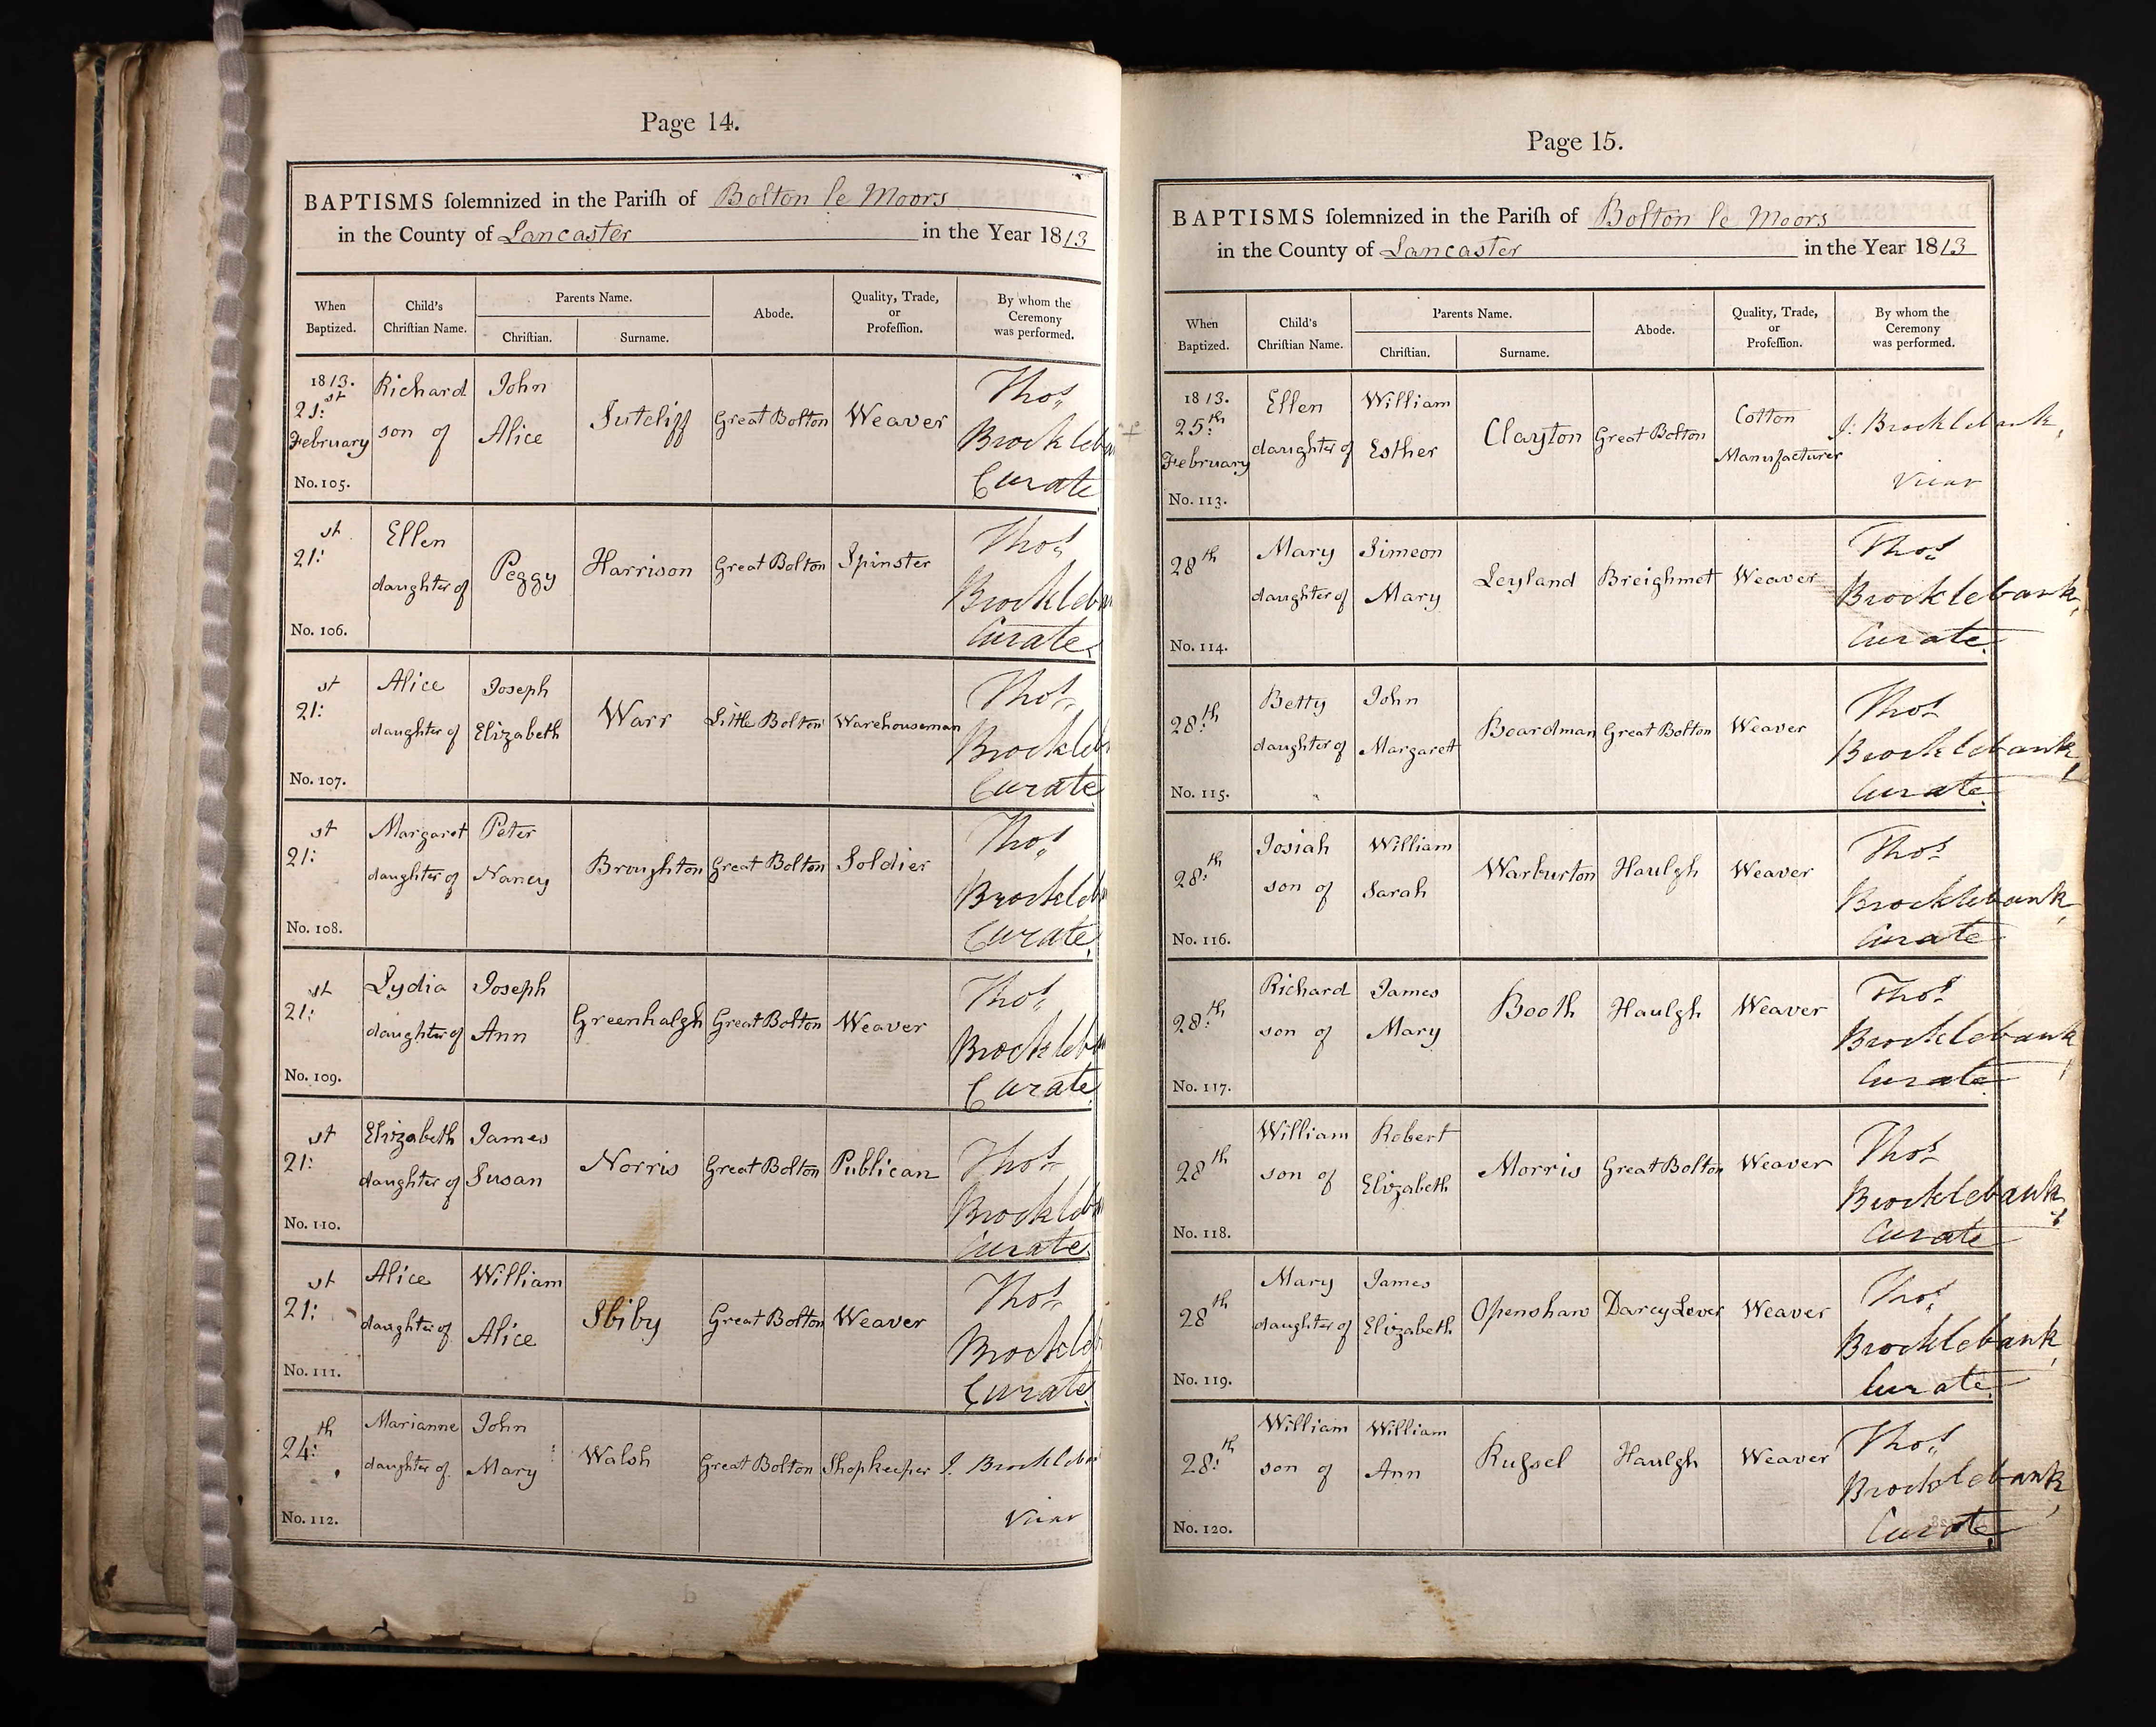 Page 14.
BAPTISMS ſolemnized in the Pariſh of Bolton le Moors
in the County of Lancaster in the Year 1813
When Baptized. Child's Chriſtian Name. Parents Name. Chriſtian. Surname. Abode. Quality, Trade, or Profeſſion. By whom the Ceremony was performed.
1813. 21st February Richard son of John Alice Sutcliff Great Bolton Weaver Thos Brockleb Curate
No. 105.
21st Ellen daughter of Peggy Harrison Great Bolton Spinster Thos Brockleb Curate
No. 106.
21st Alice daughter of Joseph Elizabeth Warr Little Bolton Warehouseman Thos Brockleb Curate
No. 107.
21st Margaret daughter of Peter Nancy Broughton Great Bolton Soldier Thos Brockleb Curate
No. 108.
21st Lydia daughter of Joseph Ann Greenhalgh Great Bolton Weaver Thos Brockleb Curate
No. 109.
21st Elizabeth daughter of James Susan Norris Great Bolton Publican Thos Brockleb Curate
No. 110.
21st Alice daughter of William Alice Great Bolton Weaver Thos Brockleb Curate
No. 111.
24th Marianne daughter of John Mary Walsh Great Bolton Shopkeeper J. Brockleb Vicar
No. 112.
Page 15.
BAPTISMS ſolemnized in the Pariſh of Bolton le Moors
in the County of Lancaster in the Year 1813
When Baptized. Child's Chriſtian Name. Parents Name. Chriſtian. Surname. Abode. Quality, Trade, or Profeſſion. By whom the Ceremony was performed.
1813. 25th February Ellen daughter of William Esther Clayton Great Bolton Cotton Manufacturer J: Brocklebank, Vicar
No. 113.
28th Mary daughter of Simeon Mary Leyland Breighmet Weaver Thos Brocklebank, Curate
No. 114.
28th Betty daughter of John Margaret Boardman Great Bolton Weaver Thos Brocklebank, Curate
No. 115.
28th Josiah son of William Sarah Warburton Haulgh Weaver Thos Brocklebank, Curate
No. 116.
28th Richard son of James Mary Booth Haulgh Weaver Thos Brocklebank, Curate
No. 117.
28th William son of Robert Elizabeth Morris Great Bolton Weaver Thos Brocklebank, Curate
No. 118.
28th Mary daughter of James Elizabeth Openshaw Darcy Lever Weaver Thos Brocklebank, Curate
No. 119.
28th William son of William Ann Ruſsel Haulgh Weaver Thos Brocklebank, Curate
No. 120.